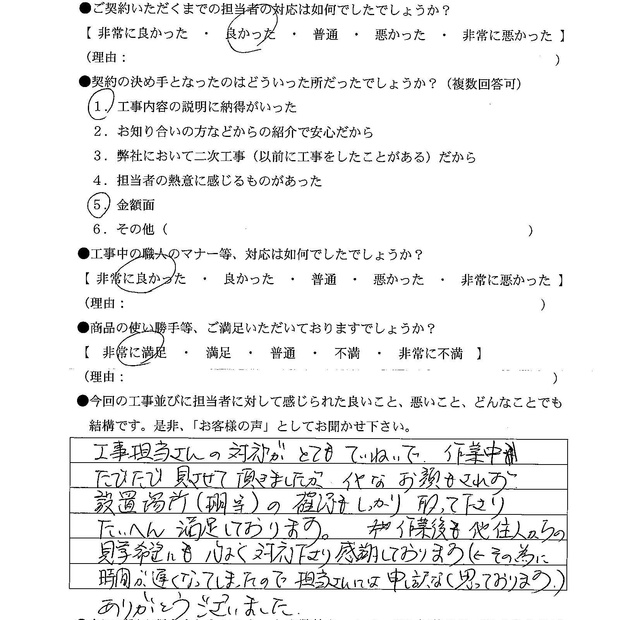 ●ご契約いただくまでの担当者の対応は如何でしたでしょうか？
【 非常に良かった ・ 良かった ・ 普通 ・ 悪かった ・ 非常に悪かった 】
（理由： ）
●契約の決め手となったのはどういった所だったでしょうか？（複数回答可）
１．工事内容の説明に納得がいった
２．お知り合いの方などからの紹介で安心だから
３．弊社において二次工事（以前に工事をしたことがある）だから
４．担当者の熱意に感じるものがあった
５．金額面
６．その他（ ）
●工事中の職人のマナー等、対応は如何でしたでしょうか？
【 非常に良かった ・ 良かった ・ 普通 ・ 悪かった ・ 非常に悪かった 】
（理由： ）
●商品の使い勝手等、ご満足いただいておりますでしょうか？
【 非常に満足 ・ 満足 ・ 普通 ・ 不満 ・ 非常に不満 】
（理由： ）
●今回の工事並びに担当者に対して感じられた良いこと、悪いこと、どんなことでも
結構です。是非、「お客様の声」としてお聞かせ下さい。
工事担当さんの対応がとてもていねいで、作業中
たびたび見させて頂きましたが イヤなお顔もされず
設置場所（棚等）の確認もしっかり取って下さり
たいへん満足しております。 作業後も他住人からの
見学希望にも心よく対応下さり感謝しております（←その為に
時間が遅くなってしまたので担当さんには申訳なく思っております。）
ありがとうございました.